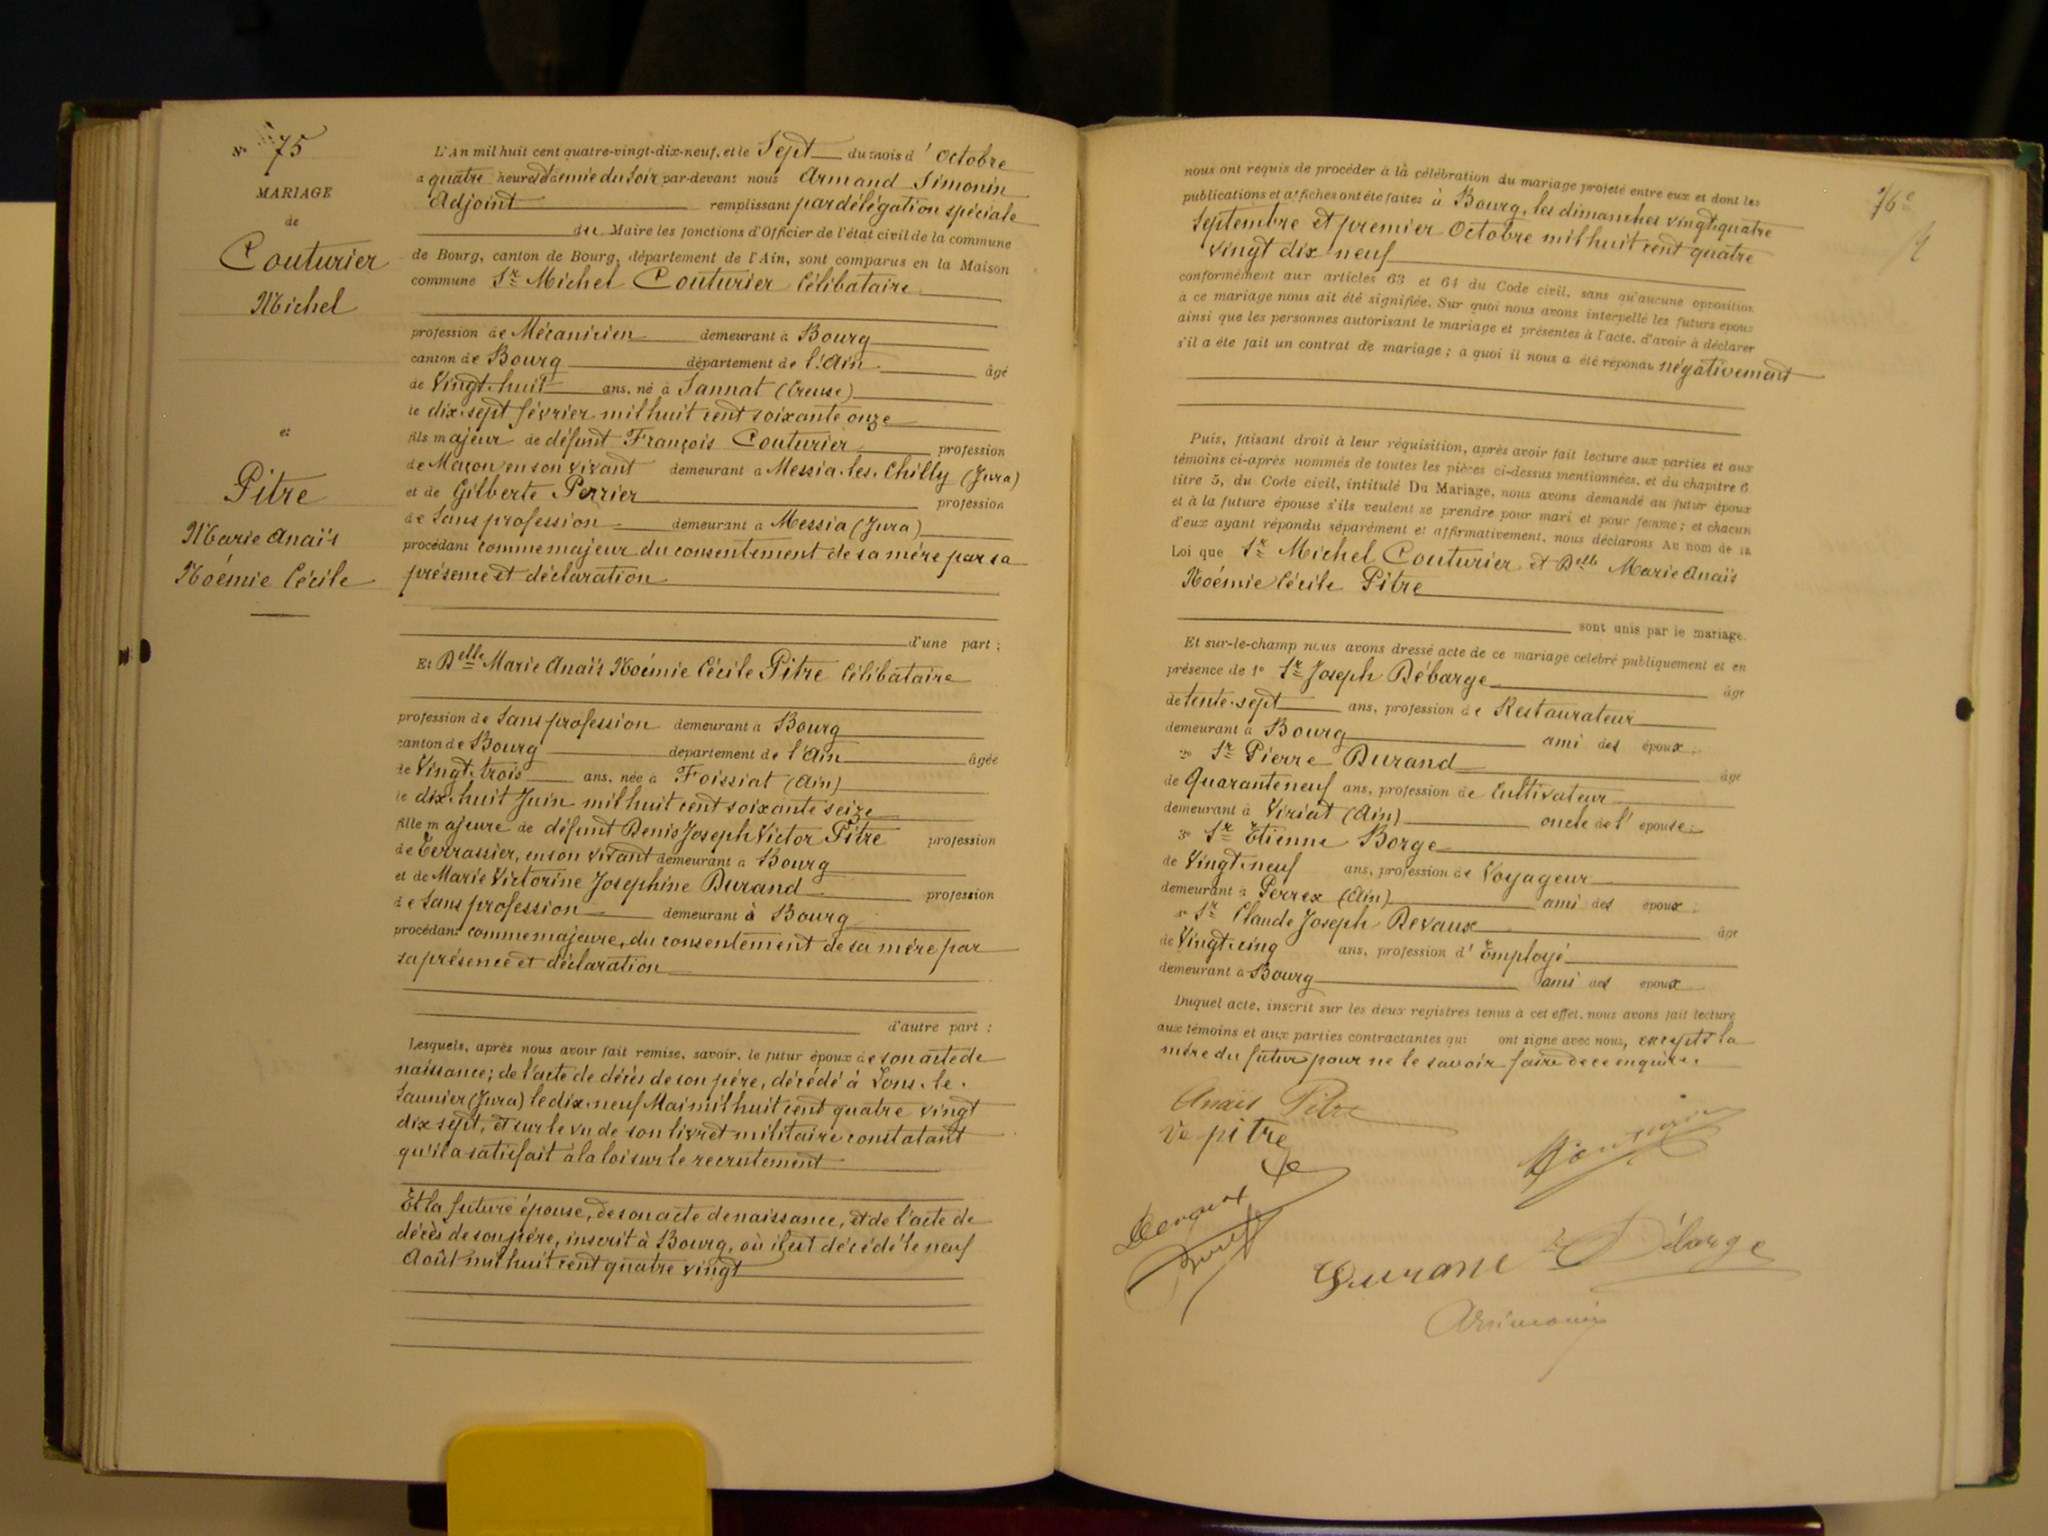 N° 75
MARIAGE
de
Couturier
Michel
et
Pitre
Marie Anaïs
Noémie Cécile
L'An mil huit cent quatre-vingt-dix-neuf, et le Sept du mois d'Octobre
a quatre heures et demie du Soir par-devant nous Armand Simonin
Adjoint remplissant par délégation spéciale
du Maire les fonctions d'Officier de l'état civil de la commune
de Bourg, canton de Bourg, département de l'Ain, sont comparus en la Maison
commune Sr Michel Couturier Célibataire
profession de Mécanicien demeurant à Bourg
canton de Bourg département de l'Ain âgé
de Vingt-huit ans, né à Sannat (Creuse)
le dix-sept février mil huit cent soixante onze
fils majeur de défunt François Couturier profession
de Maçon en son vivant demeurant à Messia-les-Chilly (Jura)
et de Gilberte Perrier profession
de Sans profession demeurant à Messia (Jura)
procédant comme majeur du consentement de sa mère par sa
présence et déclaration
d'une part ;
Et Delle Marie Anaïs Noémie Cécile Pitre Célibataire
profession de Sans profession demeurant à Bourg
canton de Bourg département de l'Ain âgée
de Vingt-trois ans, née à Foissiat (Ain)
le dix-huit Juin mil huit cent soixante seize
fille majeure de défunt Denis Joseph Victor Pitre profession
de Terrassier, en son vivant demeurant à Bourg
et de Marie Victorine Josephine Durand profession
de Sans profession demeurant à Bourg
procédant comme majeure, du consentement de sa mère par
sa présence et déclaration
d'autre part ;
Lesquels, après nous avoir fait remise, savoir, le futur époux de son acte de
naissance ; de l'acte de décès de son père, décédé à Lons-le-
Saunier (Jura) le dix-neuf Mai mil huit cent quatre vingt
dix sept, et sur le vu de son livret militaire constatant
qu'il a satisfait à la loi sur le recrutement
Et la future épouse, de son acte de naissance, et de l'acte de
décès de son père, inscrit à Bourg, où il est décédé le neuf
Août mil huit cent quatre vingt
76e
nous ont requis de procéder à la célébration du mariage projeté entre eux et dont les
publications et affiches ont été faites à Bourg, les dimanches vingt-quatre
Septembre et premier Octobre mil huit cent quatre
vingt dix neuf
conformément aux articles 63 et 64 du Code civil, sans qu'aucune opposition
à ce mariage nous ait été signifiée, Sur quoi nous avons interpellé les futurs époux
ainsi que les personnes autorisant le mariage et présentes à l'acte, d'avoir à déclarer
s'il a été fait un contrat de mariage ; a quoi il nous a été répondu négativement
Puis, faisant droit à leur réquisition, après avoir fait lecture aux parties et aux
témoins ci-après nommés de toutes les pièces ci-dessus mentionnées, et du chapitre 6
titre 5, du Code civil, intitulé Du Mariage, nous avons demandé au futur époux
et à la future épouse s'ils veulent se prendre pour mari et pour femme ; et chacun
d'eux ayant répondu séparément et affirmativement, nous déclarons Au nom de la
Loi que Sr Michel Couturier et Delle Marie Anaïs
Noémie Cécile Pitre
sont unis par le mariage.
Et sur-le-champ nous avons dressé acte de ce mariage célébré publiquement et en
présence de 1° Sr Joseph Débarge âgé
de tente-sept ans, profession de Restaurateur
demeurant à Bourg ami des époux ;
2° Sr Pierre Durand âgé
de Quarante neuf ans, profession de Cultivateur
demeurant à Viriat (Ain) oncle de l'épouse ;
3° Sr Etienne Borge
de Vingt-neuf ans, profession de Voyageur
demeurant à Perrex (Ain) ami des époux ;
4° Sr Claude Joseph Devaux âgé
de Vingt-cinq ans, profession d'Employé
demeurant à Bourg ami des époux
Duquel acte, inscrit sur les deux registres tenus à cet effet, nous avons fait lecture
aux témoins et aux parties contractantes qui ont signé avec nous, excepté la
mère du futur pour ne le savoir faire de ce enquise.
Anaïs Pitre
Ve pitre
Couturier
Devaux
Durand
Débarge
Arsimonin